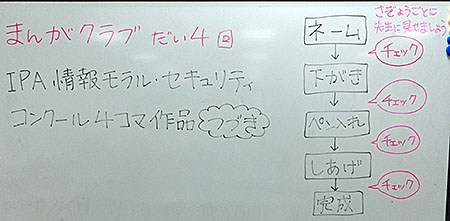 まんがクラブ だい4回
IPA 情報モラル・セキュリティ
コンクール4コマ作品 つづき
さぎょうごとに
先生に見せましょう
ネーム
チェック
下がき
チェック
ペン入れ
チェック
しあげ
チェック
完成